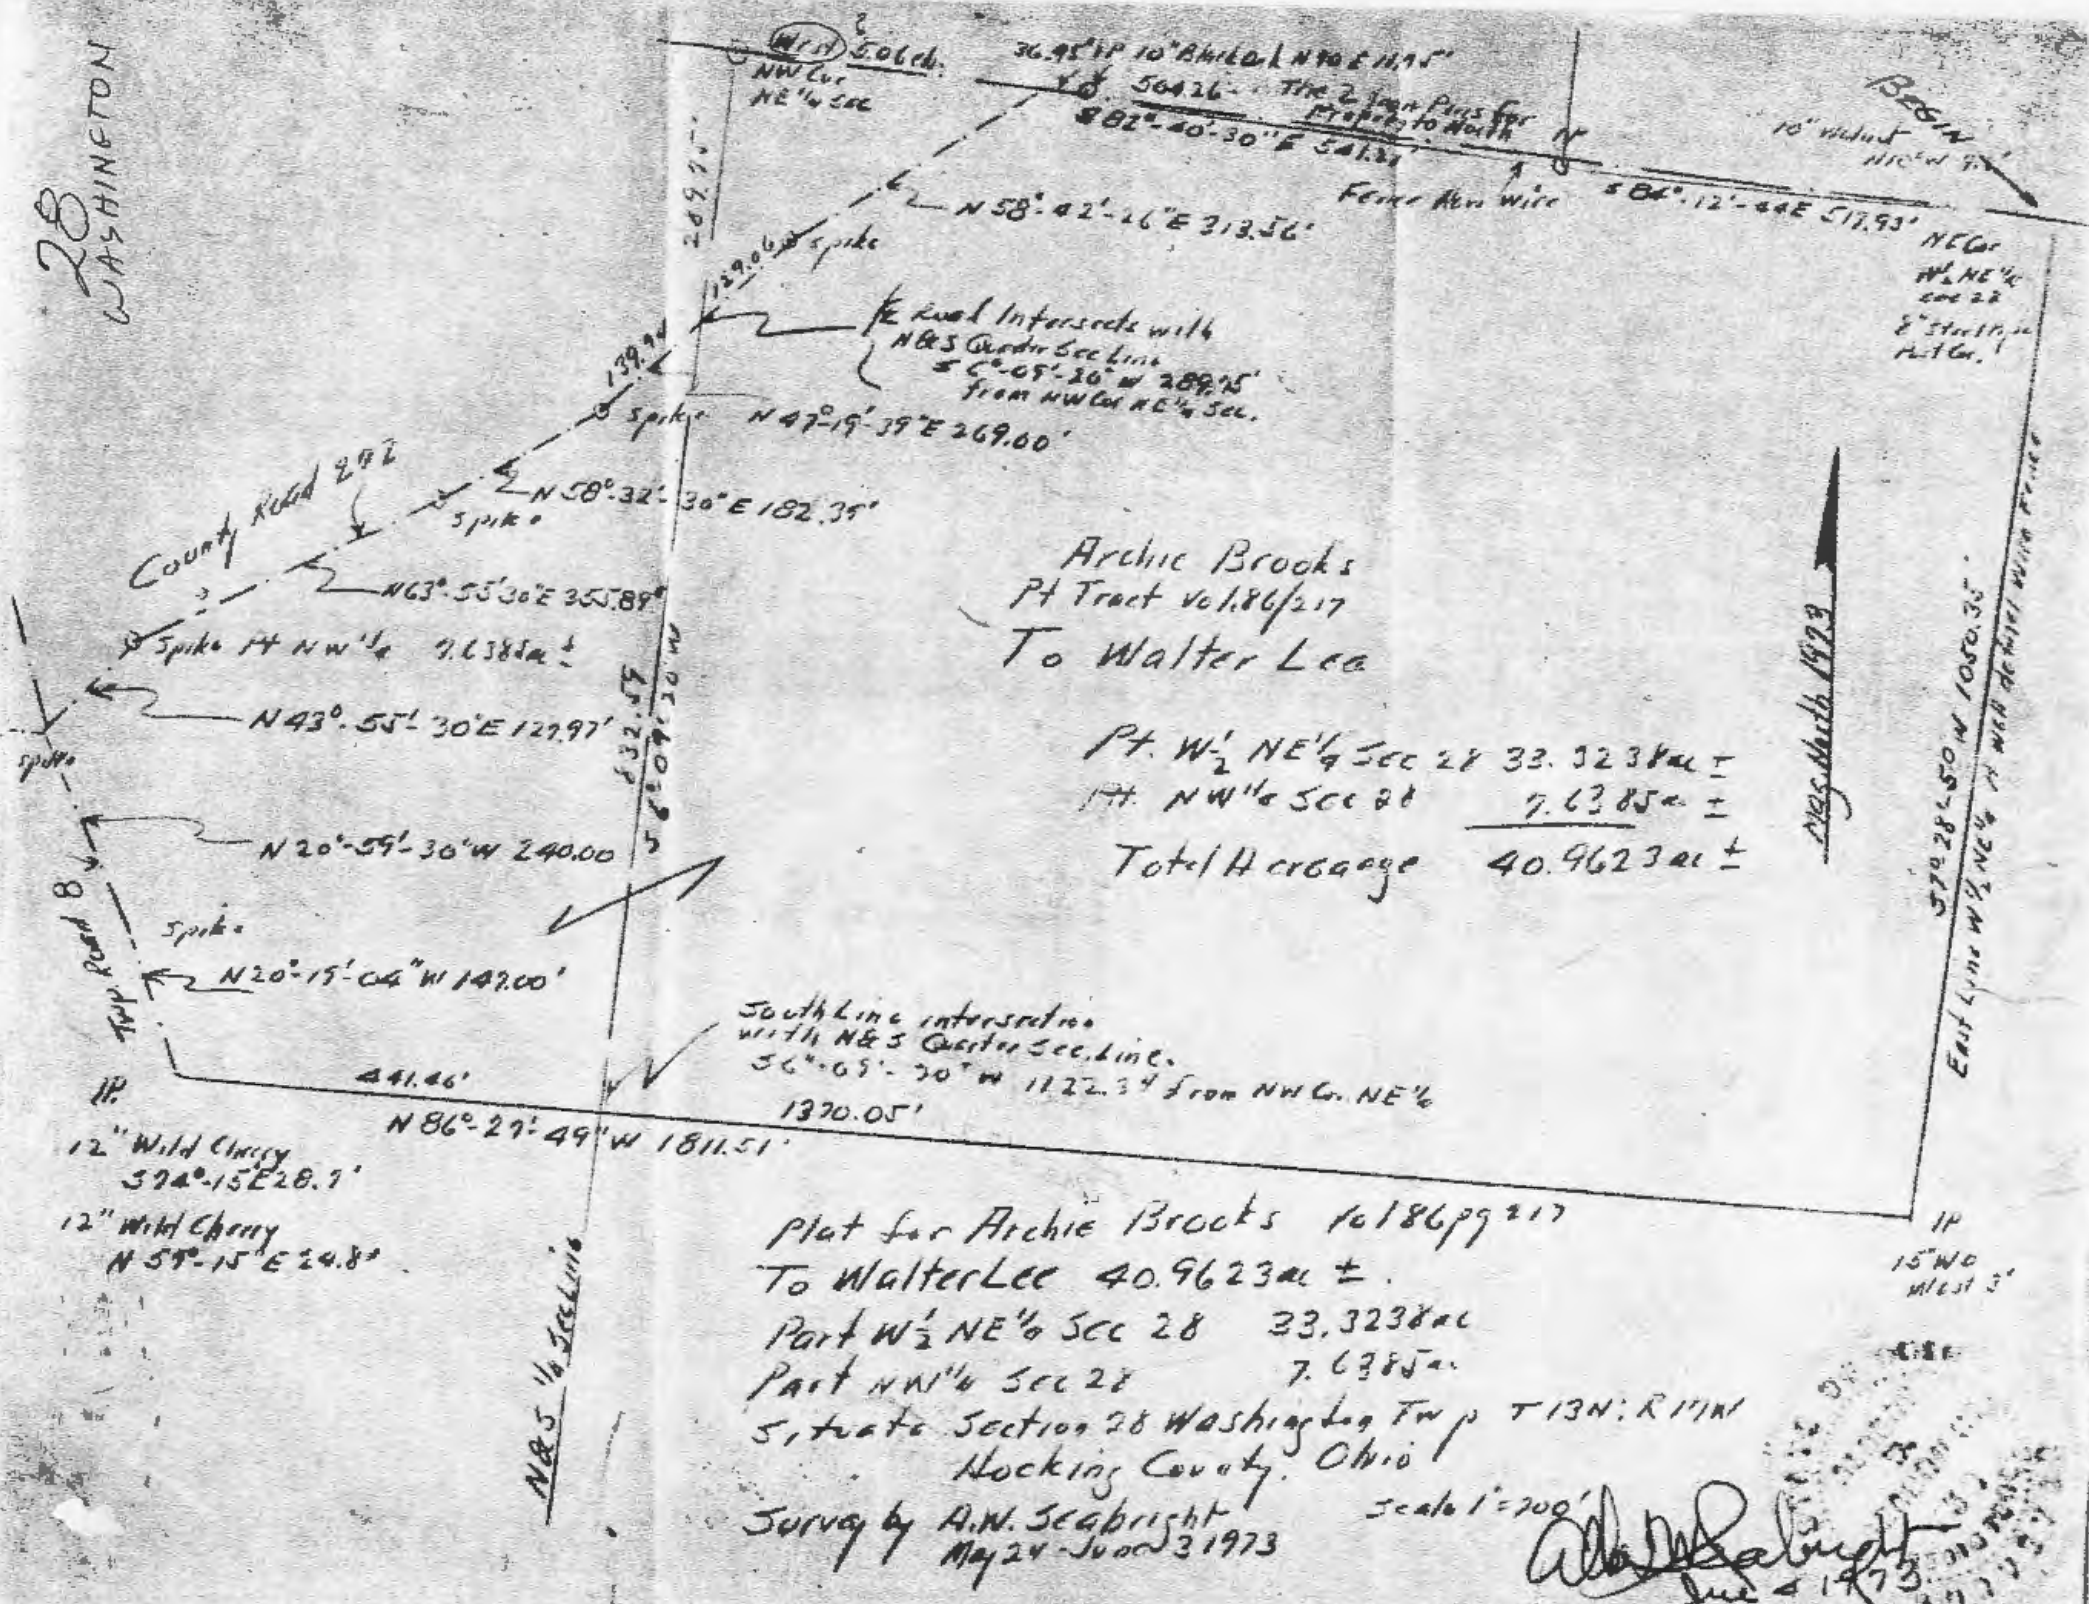 28
WASHINGTON
West 5.06 ch.
NW Cor
NE 1/4 Sec
36.95' IP 10" Black Oak N 40 E 11.95'
504.26 The 2 Iron Pins For
Property to North
S 82°-40'-30" E 541.21'
IP
BEGIN
10" Walnut
Fence New Wire
S 84°-12'-44 E 517.93'
NE Cor
W 1/2 NE 1/4
Sec 28
8" Steel Pipe
N 58°-42'-26" E 313.56'
spike
129.06
139.94
℄ Road Intersects with
N&S Quarter Sec Line
S 6°-09'-30" W 289.75'
from NW Cor NE 1/4 Sec.
spike N 47°-19'-39" E 269.00'
N 58°-32'-30" E 182.35'
spike
County Road 292
N 63°-55'30" E 355.89'
spike Pt NW 1/4 7.6385 ac ±
N 43°-55'-30" E 127.97'
spike
832.59
S 6°09'30 W
N 20°-59'-30" W 240.00
Twp. Road 8
spike
N 20°-19'-04" W 147.00'
Archie Brooks
Pt Tract Vol.86/217
To Walter Lee
Pt. W 1/2 NE 1/4 Sec 28 33.3238 ac ±
Pt. NW 1/4 Sec 28 7.6385 ac ±
Total Acreange 40.9623 ac ±
Mag. North 1973
S 7°-28'-50" W 1050.35'
East Line W 1/2 NE 1/4
South Line intersection
with N&S Quarter Sec. Line.
S 6°-09'-30" W 1122.34 from NW Cor. NE 1/4
441.46'
1370.05'
N 86°-27'-49" W 1811.51'
IP.
12" Wild Cherry
S 74°-15' E 28.7'
12" Wild Cherry
N 59°-15' E 24.8'
N&S 1/4 Sec Line
IP
15" WO
West 3'
Plat for Archie Brooks Vol 86 pg 217
To Walter Lee 40.9623 ac ±.
Part W 1/2 NE 1/4 Sec 28 33.3238 ac
Part NW 1/4 Sec 28 7.6385 ac
Situate Section 28 Washington Twp T13N; R17W
Hocking County, Ohio
Survey by A.W. Seabright
May 24 - June 3 1973
Scale 1"=200'
June 4 1973